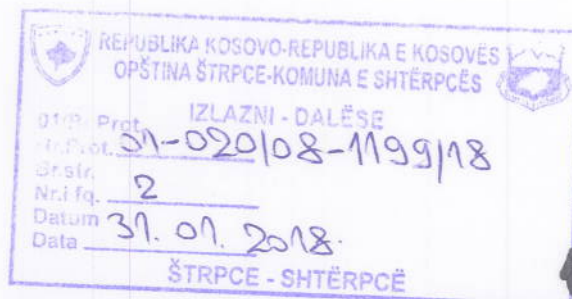 REPUBLIKA KOSOVO-REPUBLIKA E KOSOVËS
OPŠTINA ŠTRPCE-KOMUNA E SHTËRPCËS
IZLAZNI - DALËSE
Prot.
Prot. 01-020/08-1199/18
Br.str.
Nr.i fq. 2
Datum
Data 31.01.2018.
ŠTRPCE - SHTËRPCË